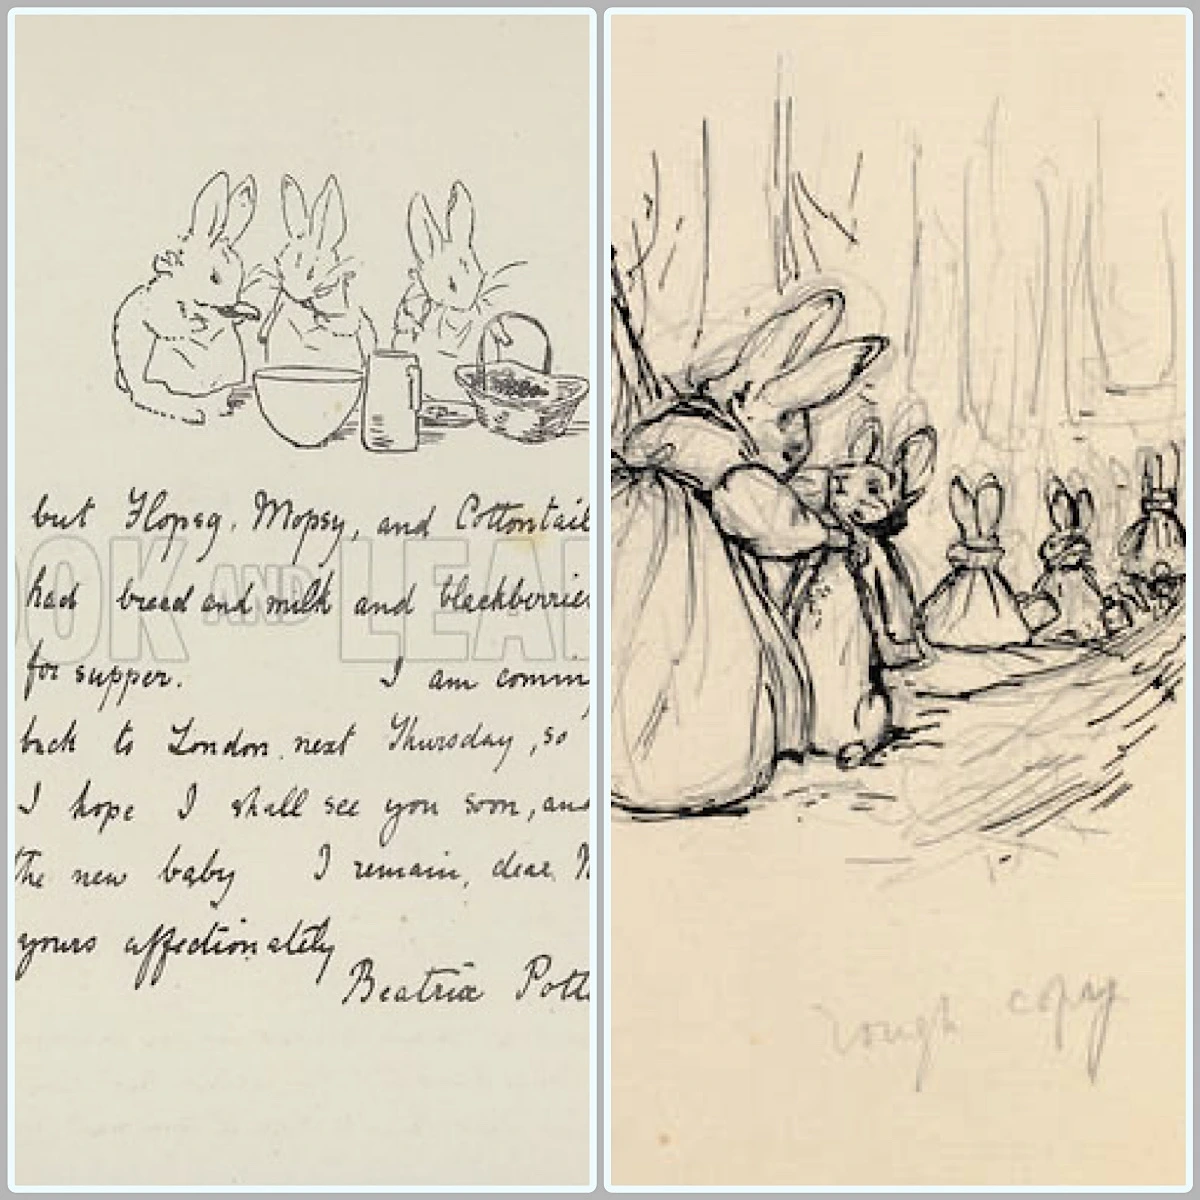 but Flopsy, Mopsy, and Cottontail
had bread and milk and blackberries
for supper. I am comin
back to London next Thursday, so
I hope I shall see you soon, and
the new baby I remain, dear N
yours affectionately
Beatrix Potte
OOK AND LEA
rough copy